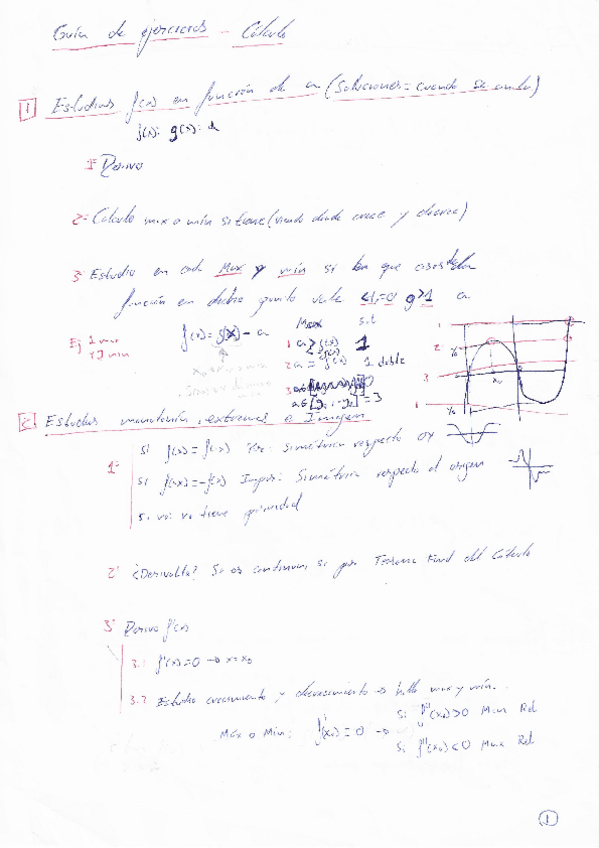 Guía de ejercicios - Cálculo
1 Estudiar f(x) en función de a (Soluciones = cuando se anula)
f(x): g(x): a
1º Derivo
2º Calculo max o mín si tiene (viendo donde crece y decrece)
3º Estudio en cada Max y mín si la
función en dicho punto vale <1, =0 >1 a
Ej 1 max f(x)=g(x)-a Max s.t
1 min 1 a > f(x) 1
2 a = f(x) 1 doble
3
a∈[y₀, y₁] = 3
2 Estudiar monotonía, extremos e Imagen
1º Si f(x)=f(-x) Par: Simétrica respecto OY
Si f(-x)=-f(x) Impar: Simétrica respecto al origen
Si no: no tiene paridad
2º ¿Derivable? Si es continua, si por Teorema Fund del Cálculo
3º Derivo f'(x)
3.1 f'(x)=0 → x=x₀
3.2 Estudio crecimiento y decrecimiento → hallo max y mín.
Si f''(x₀)>0 Min Rel
Máx o Mín: f'(x₀)=0 →
Si f''(x₀)<0 Max Rel
1